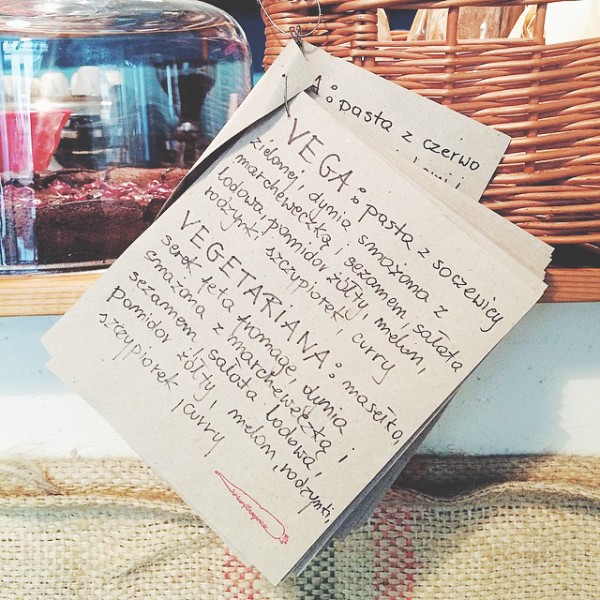 A: pasta z czerwo
VEGA: pasta z soczewicy
zielonej, dynia smażona z
marcheweczką i sezamem, sałata
lodowa, pomidor żółty, melon,
rodzynki, szczypiorek, curry
VEGETARIANA: masełko,
serek feta fromage, dynia
smażona z marcheweczką i
sezamem, sałata lodowa,
pomidor żółty, melon, rodzynki,
szczypiorek, curry